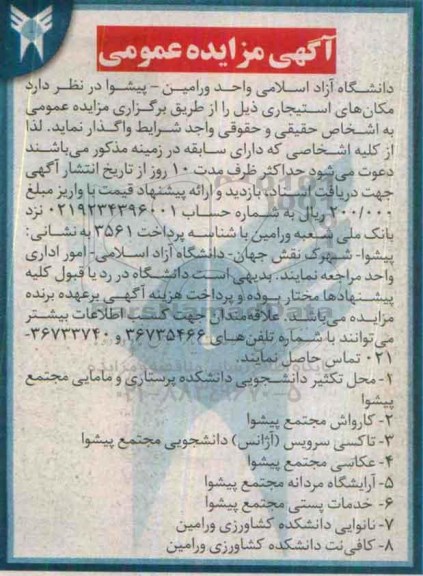 آگهی مزایده عمومی
دانشگاه آزاد اسلامی واحد ورامین - پیشوا در نظر دارد
مکان‌های استیجاری ذیل را از طریق برگزاری مزایده عمومی
به اشخاص حقیقی و حقوقی واجد شرایط واگذار نماید. لذا
از کلیه اشخاصی که دارای سابقه در زمینه مذکور می‌باشند
دعوت می‌شود حداکثر ظرف مدت ۱۰ روز از تاریخ انتشار آگهی
جهت دریافت اسناد، بازدید و ارائه پیشنهاد قیمت با واریز مبلغ
۲۰۰/۰۰۰ ریال به شماره حساب ۰۲۱۹۲۳۴۳۹۶۰۰۱ نزد
بانک ملی شعبه ورامین با شناسه پرداخت ۳۵۶۱ به نشانی:
پیشوا- شهرک نقش جهان- دانشگاه آزاد اسلامی- امور اداری
واحد مراجعه نمایند. بدیهی است دانشگاه در رد یا قبول کلیه
پیشنهادها مختار بوده و پرداخت هزینه آگهی برعهده برنده
مزایده می‌باشد. علاقه‌مندان جهت کسب اطلاعات بیشتر
می‌توانند با شماره تلفن‌های ۳۶۷۳۵۴۶۶ و ۳۶۷۳۳۷۴۰-
۰۲۱ تماس حاصل نمایند.
۱- محل تکثیر دانشجویی دانشکده پرستاری و مامایی مجتمع
پیشوا
۲- کارواش مجتمع پیشوا
۳- تاکسی سرویس (آژانس) دانشجویی مجتمع پیشوا
۴- عکاسی مجتمع پیشوا
۵- آرایشگاه مردانه مجتمع پیشوا
۶- خدمات پستی مجتمع پیشوا
۷- نانوایی دانشکده کشاورزی ورامین
۸- کافی‌نت دانشکده کشاورزی ورامین